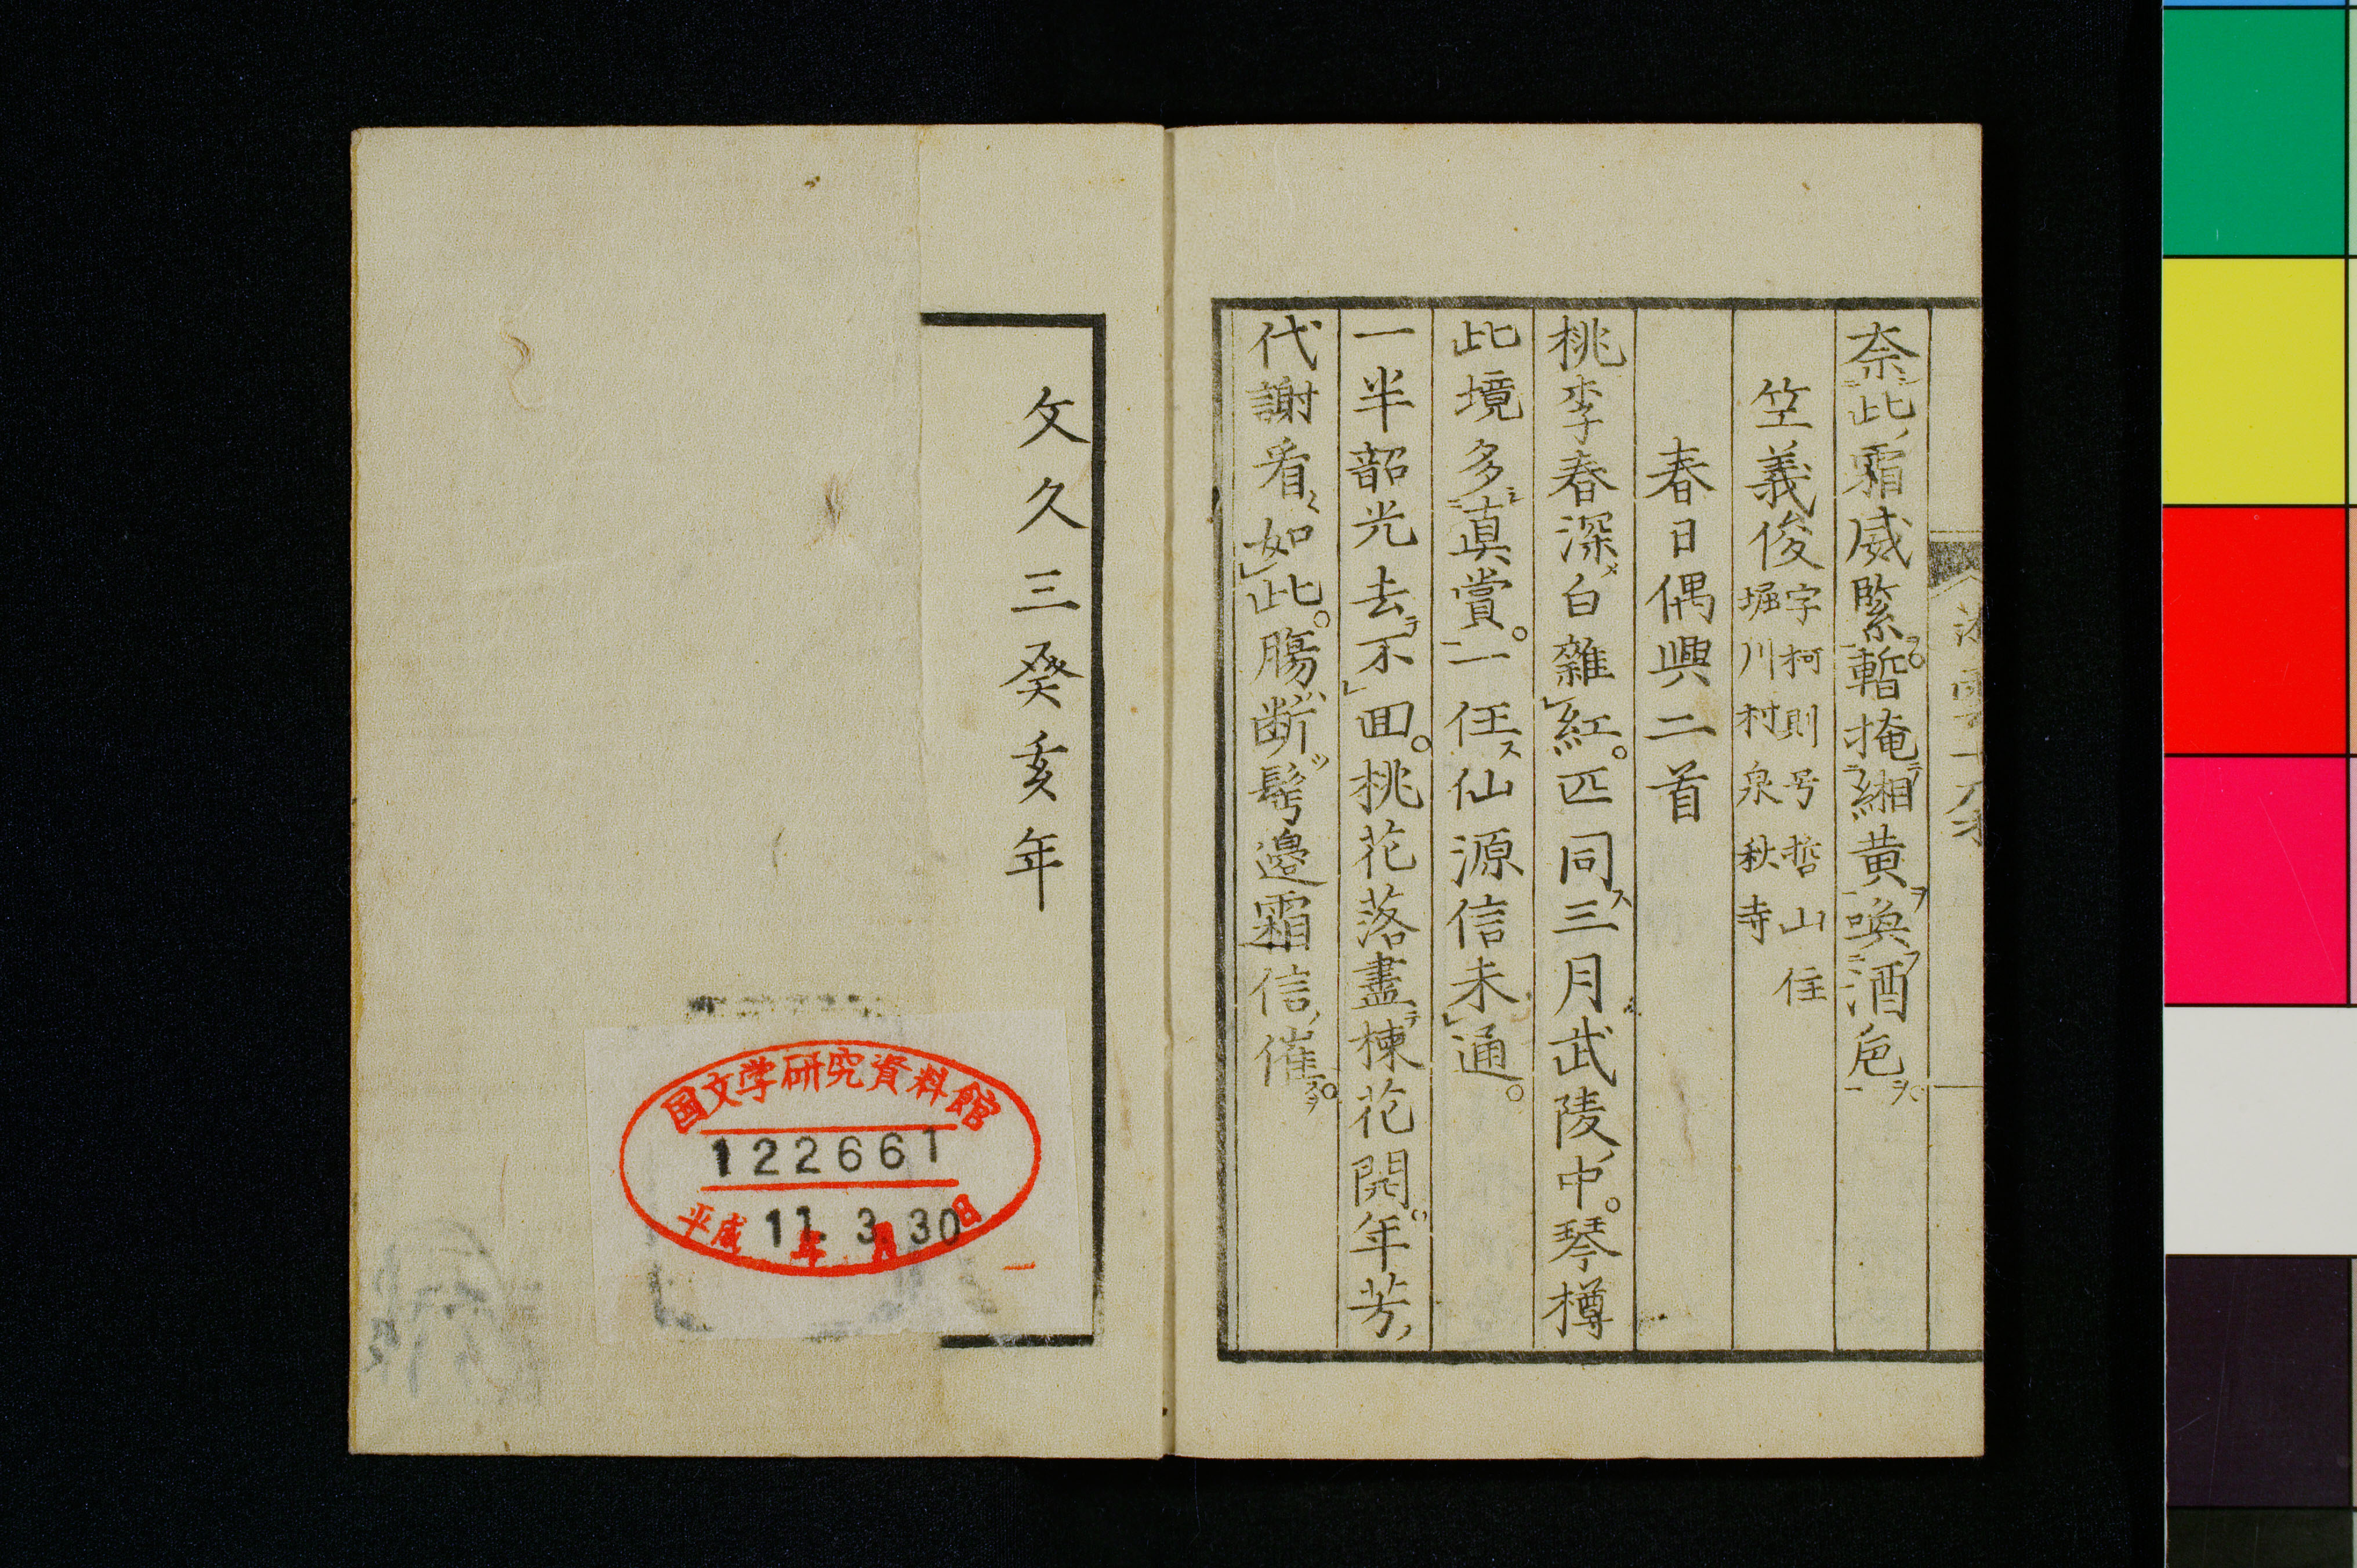 奈此霜威緊暫掩緗黄喚酒巵
笠義俊 字柯則号哲山住
堀川村泉秋寺
春日偶興二首
桃李春深白雜紅匹同三月武陵中琴樽
此境多眞賞一任仙源信未通
一半韶光去不回桃花落盡楝花開年芳
代謝看〻如此腸断髩邊霜信催
文久三癸亥年
国文学研究資料館
122661
平成11年3月30日